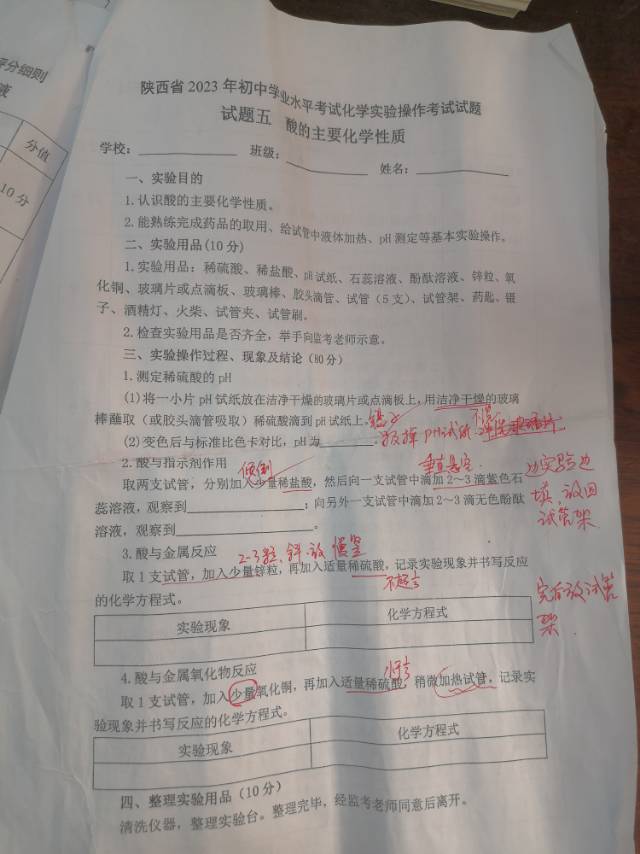 评分细则
液
分值
10分
陕西省2023年初中学业水平考试化学实验操作考试试题
试题五 酸的主要化学性质
学校： 班级： 姓名：
一、实验目的
1.认识酸的主要化学性质。
2.能熟练完成药品的取用、给试管中液体加热、pH测定等基本实验操作。
二、实验用品(10分)
1.实验用品：稀硫酸、稀盐酸、pH试纸、石蕊溶液、酚酞溶液、锌粒、氧
化铜、玻璃片或点滴板、玻璃棒、胶头滴管、试管（5支）、试管架、药匙、镊
子、酒精灯、火柴、试管夹、试管刷。
2.检查实验用品是否齐全，举手向监考老师示意。
三、实验操作过程、现象及结论（80分）
1.测定稀硫酸的pH
(1)将一小片pH试纸放在洁净干燥的玻璃片或点滴板上，用洁净干燥的玻璃
棒蘸取（或胶头滴管吸取）稀硫酸滴到pH试纸上。镊子
(2)变色后与标准比色卡对比，pH为 。 扔掉PH试纸
2.酸与指示剂作用
倾倒 垂直悬空
取两支试管，分别加入少量稀盐酸，然后向一支试管中滴加2～3滴紫色石
蕊溶液，观察到 ；向另外一支试管中滴加2～3滴无色酚酞
溶液，观察到 。
边实验边
填，放回
试管架
3.酸与金属反应
2-3粒，斜放 慢竖
取1支试管，加入少量锌粒，再加入适量稀硫酸，记录实验现象并书写反应
的化学方程式。
不超⅓
完后放试管
架
实验现象 化学方程式
4.酸与金属氧化物反应
取1支试管，加入少量氧化铜，再加入适量稀硫酸，稍微加热试管，记录实
验现象并书写反应的化学方程式。
实验现象 化学方程式
四、整理实验用品（10分）
清洗仪器，整理实验台。整理完毕，经监考老师同意后离开。